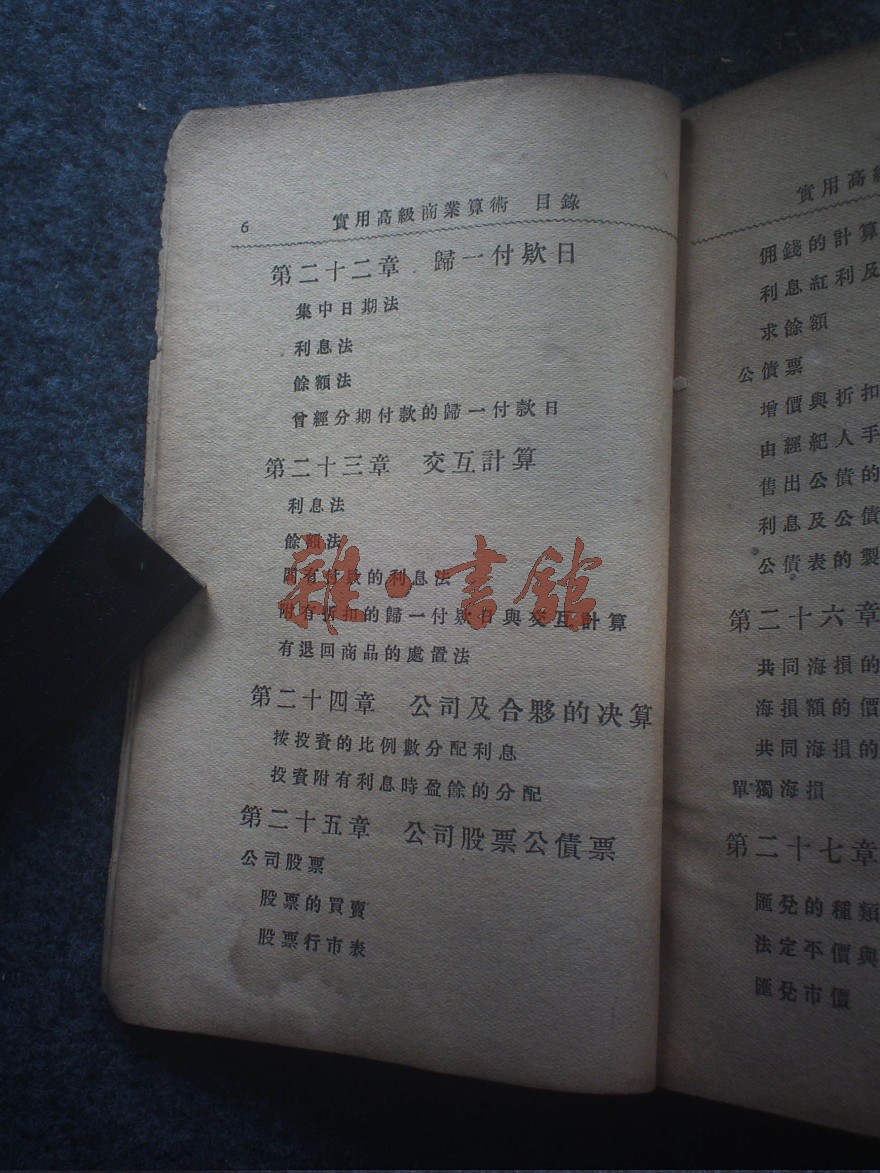 6 實用高級商業算術 目錄
第二十二章 歸一付欵日
集中日期法
利息法
餘額法
曾經分期付款的歸一付款日
第二十三章 交互計算
利息法
餘額法
間有付欵的利息法
附有折扣的歸一付欵日與交互計算
有退回商品的處置法
第二十四章 公司及合夥的决算
按投資的比例數分配利息
投資附有利息時盈餘的分配
第二十五章 公司股票公債票
公司股票
股票的買賣
股票行市表
雜·書館
實用高級
佣錢的計算
利息紅利及
求餘額
公債票
增價與折扣
由經紀人手
售出公債的
利息及公債
公債表的製
第二十六章
共同海損的
海損額的價
共同海損的
單獨海損
第二十七章
匯兌的種類
法定平價與
匯兌市價